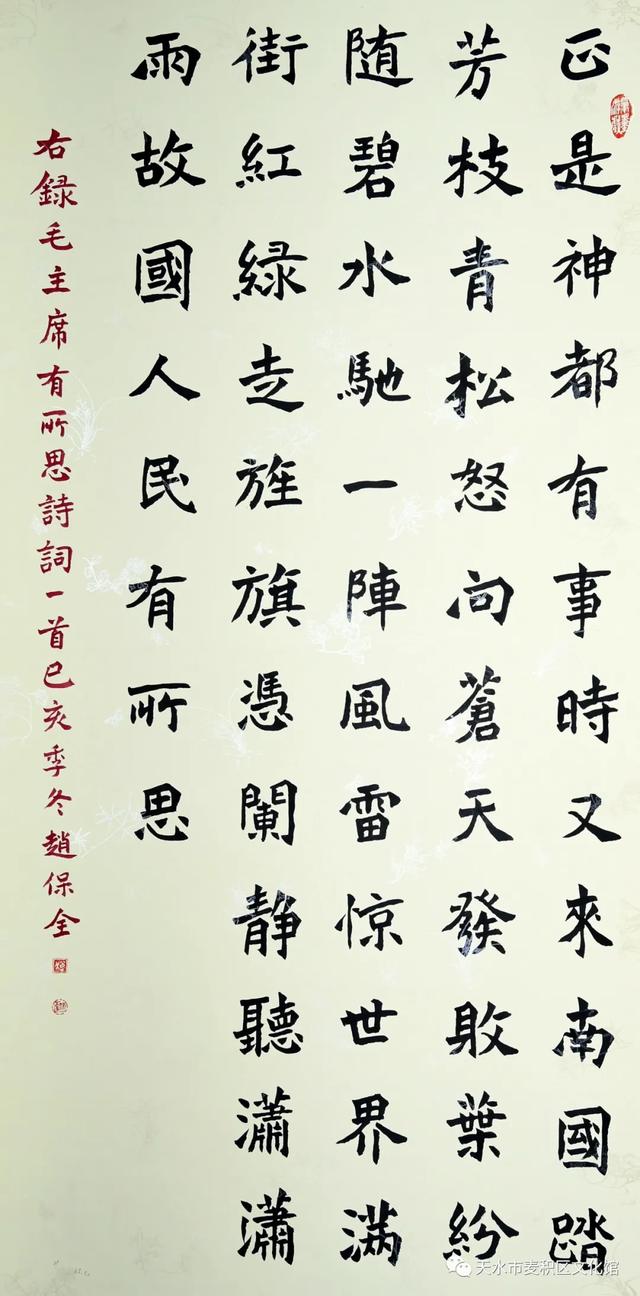 正是神都有事時又來南國踏
芳枝青松怒向蒼天發敗葉紛
随碧水馳一陣風雷惊世界满
街紅緑走旌旗憑闌静聽瀟瀟
雨故國人民有所思
右録毛主席有所思詩詞一首己亥季冬趙保全
天水市麦积区文化馆